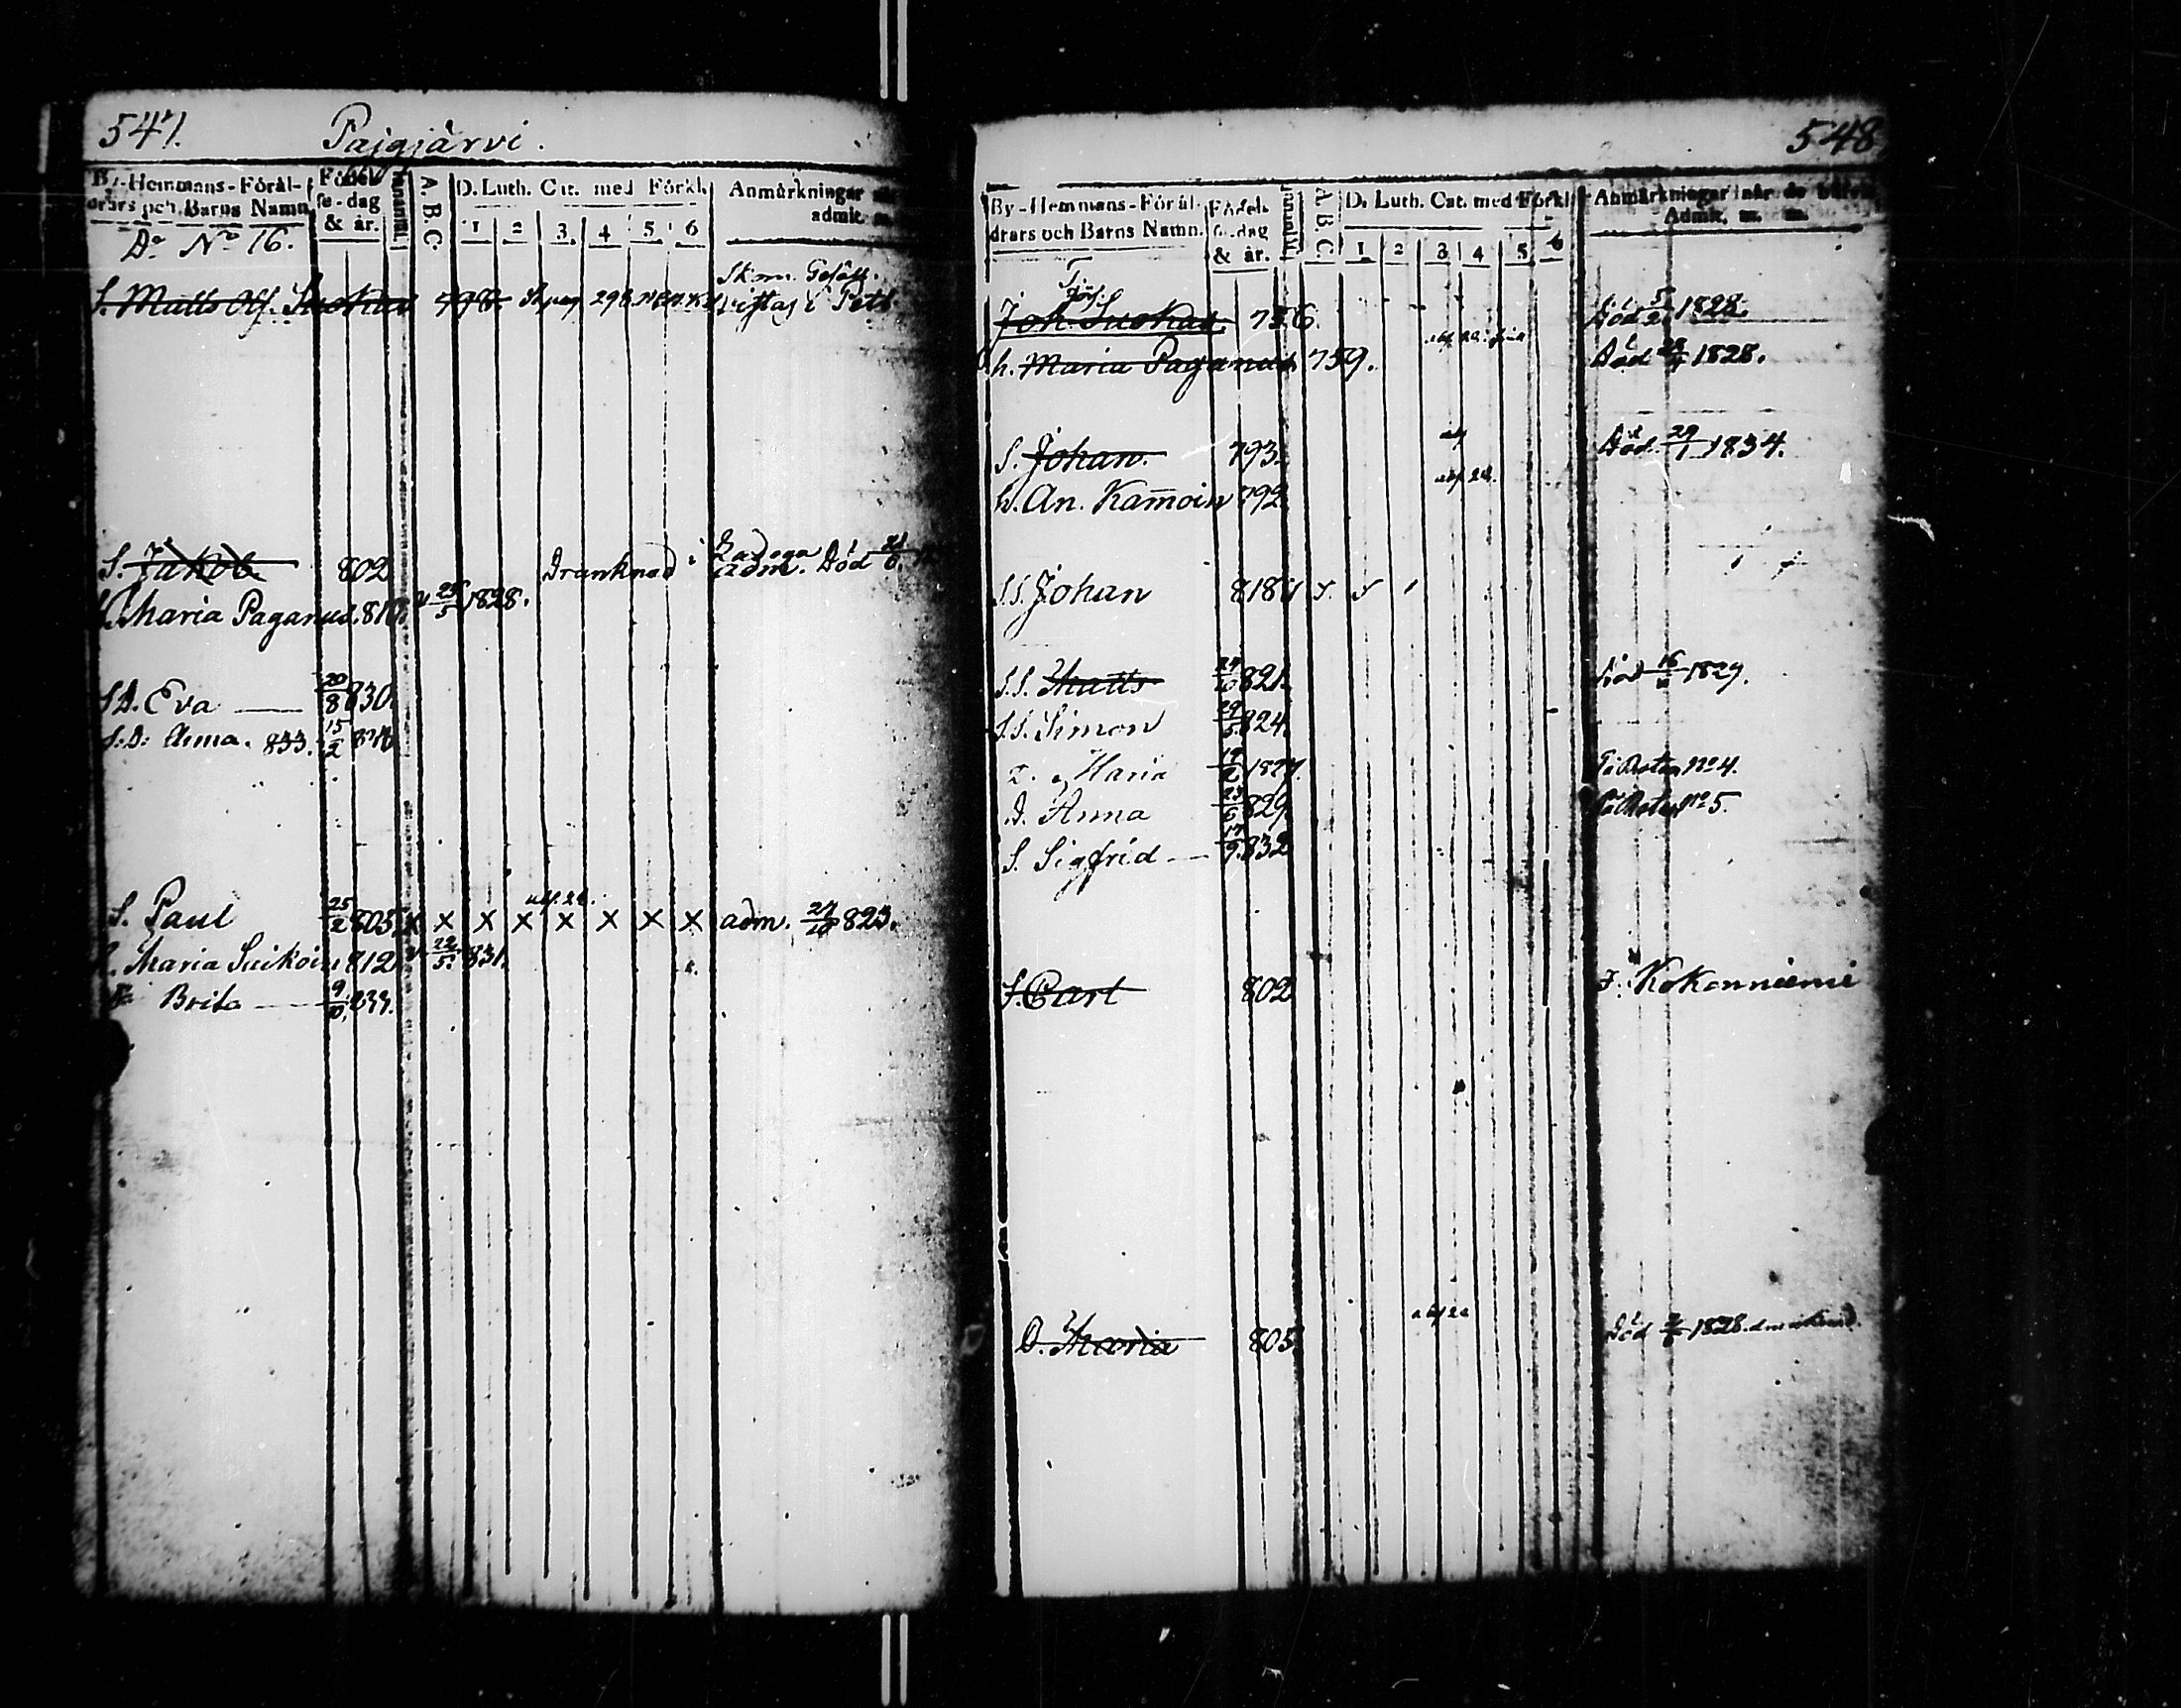 547.
Pajgjärvi.
By-Hemmans-Föräl-
drars och Barns Namn.
Födel-
se-dag
& år.
Innanläs.
A B C
D. Luth. Cat. med Förkl.
1 2 3 4 5 6
Anmärkningar
admit. m.
Do No 16.
S. Matts Olf. Suokas 796.
S. Jakob 802 Drunknad i Ladoga adm. Död
h. Maria Paganus. 810. v 25/5 1828.
S.D. Eva 20/8 830.
S.D. Anna. 833. 15/2
S. Paul 25/2 805. x x x x x x x x adm. 27/10 823.
h. Maria Suikoin 812 v 22/5 831.
D. Brita 9/10 833.
548.
By-Hemmans-Föräl-
drars och Barns Namn.
Födel-
se-dag
& år.
Innanläs.
A B C
D. Luth. Cat. med Förkl.
1 2 3 4 5 6
Anmärkningar när de blifvit
Admit. m. m.
Joh. Suokas. 756. Död 5/2 1828.
h. Maria Paganus 759. Död 1828.
S. Johan. 793. Död 29/1 1834.
h. An. Kam̄oin 792
S.S. Johan 818
S.S. Matts 821. Död 16/ 1829.
S.S. Simon 29/5 824.
D. Maria 1827. På Roten No 4.
D. Anna 23/6 829 På Roten No 5.
S. Sigfrid 17/9 832
S. Carl 802 F. Kokonniemi
D. Maria 805. Död 1828.